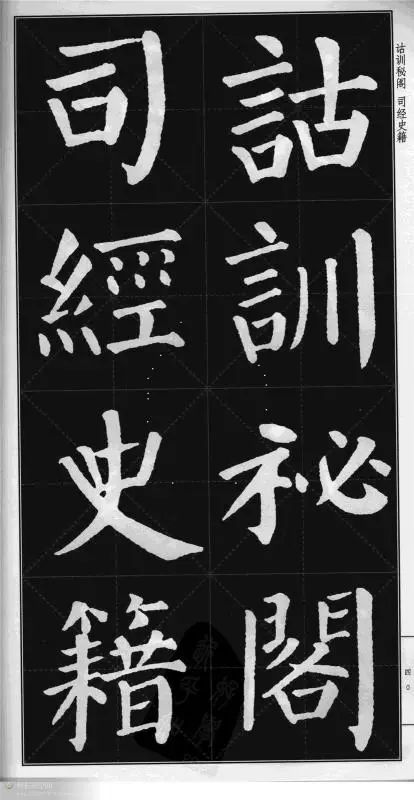 詁訓秘閣
司經史籍
诂训秘阁 司经史籍
四〇